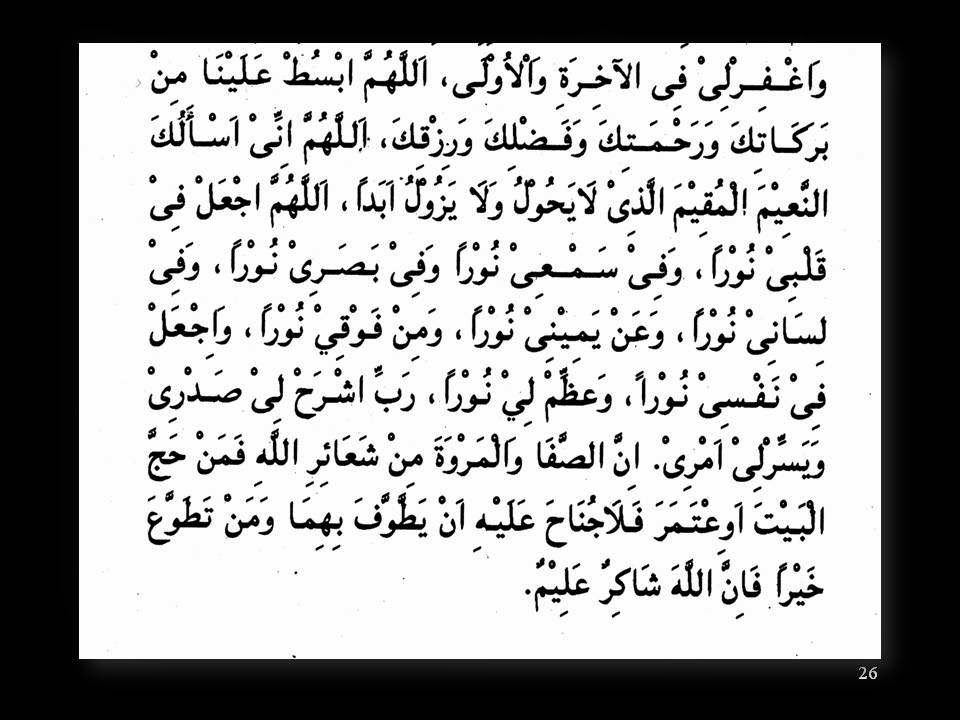 وَاَغْـفِـرْلِىْ فِى الآخِـرَةِ وَاَلْاُوْلَى، اَللَّهُمَّ ابْسُطْ عَـلَيْنَـا مِنْ
بَرَكَـاتِكَ وَرَحْـمَـتِكَ وَفَـضْلِكَ وَرِزْقِكَ، اَللَّهُمَّ اِنِّىْ اَسْـأَلُكَ
النَّعِيْمَ الْمُقِيْمَ الَّذِىْ لَايَحُوْلُ وَلَا يَزُوْلُ اَبَداً، اَللَّهُمَّ اجْعَلْ فِىْ
قَلْبِىْ نُوْراً، وَفِـىْ سَـمْـعِـىْ نُوْراً وَفِىْ بَـصَـرِىْ نُـوْراً، وَفِىْ
لِسَانِىْ نُوْراً، وَعَنْ يَمِيْنِىْ نُوْراً، وَمِنْ فَـوْقِيْ نُوْراً، وَاجْعَلْ
فِىْ نَـفْـسِـىْ نُـوْراً، وَعَظِّمْ لِيْ نُـوْراً، رَبِّ اشْـرَحْ لِىْ صَـدْرِىْ
وَيَسِّرْلِىْ اَمْرِىْ. اِنَّ الصَّفَا وَالْمَرْوَةَ مِنْ شَعَائِرِ اللَّهِ فَمَنْ حَجَّ
الْبَـيْتَ اَوِعْتَـمَرَ فَـلَاجُنَاحَ عَلَيْـهِ اَنْ يَطَّوَّفَ بِهِمَـا وَمَنْ تَطَوَّعَ
خَيْراً فَاِنَّ اللَّهَ شَاكِرٌ عَلِيْمٌ.
26